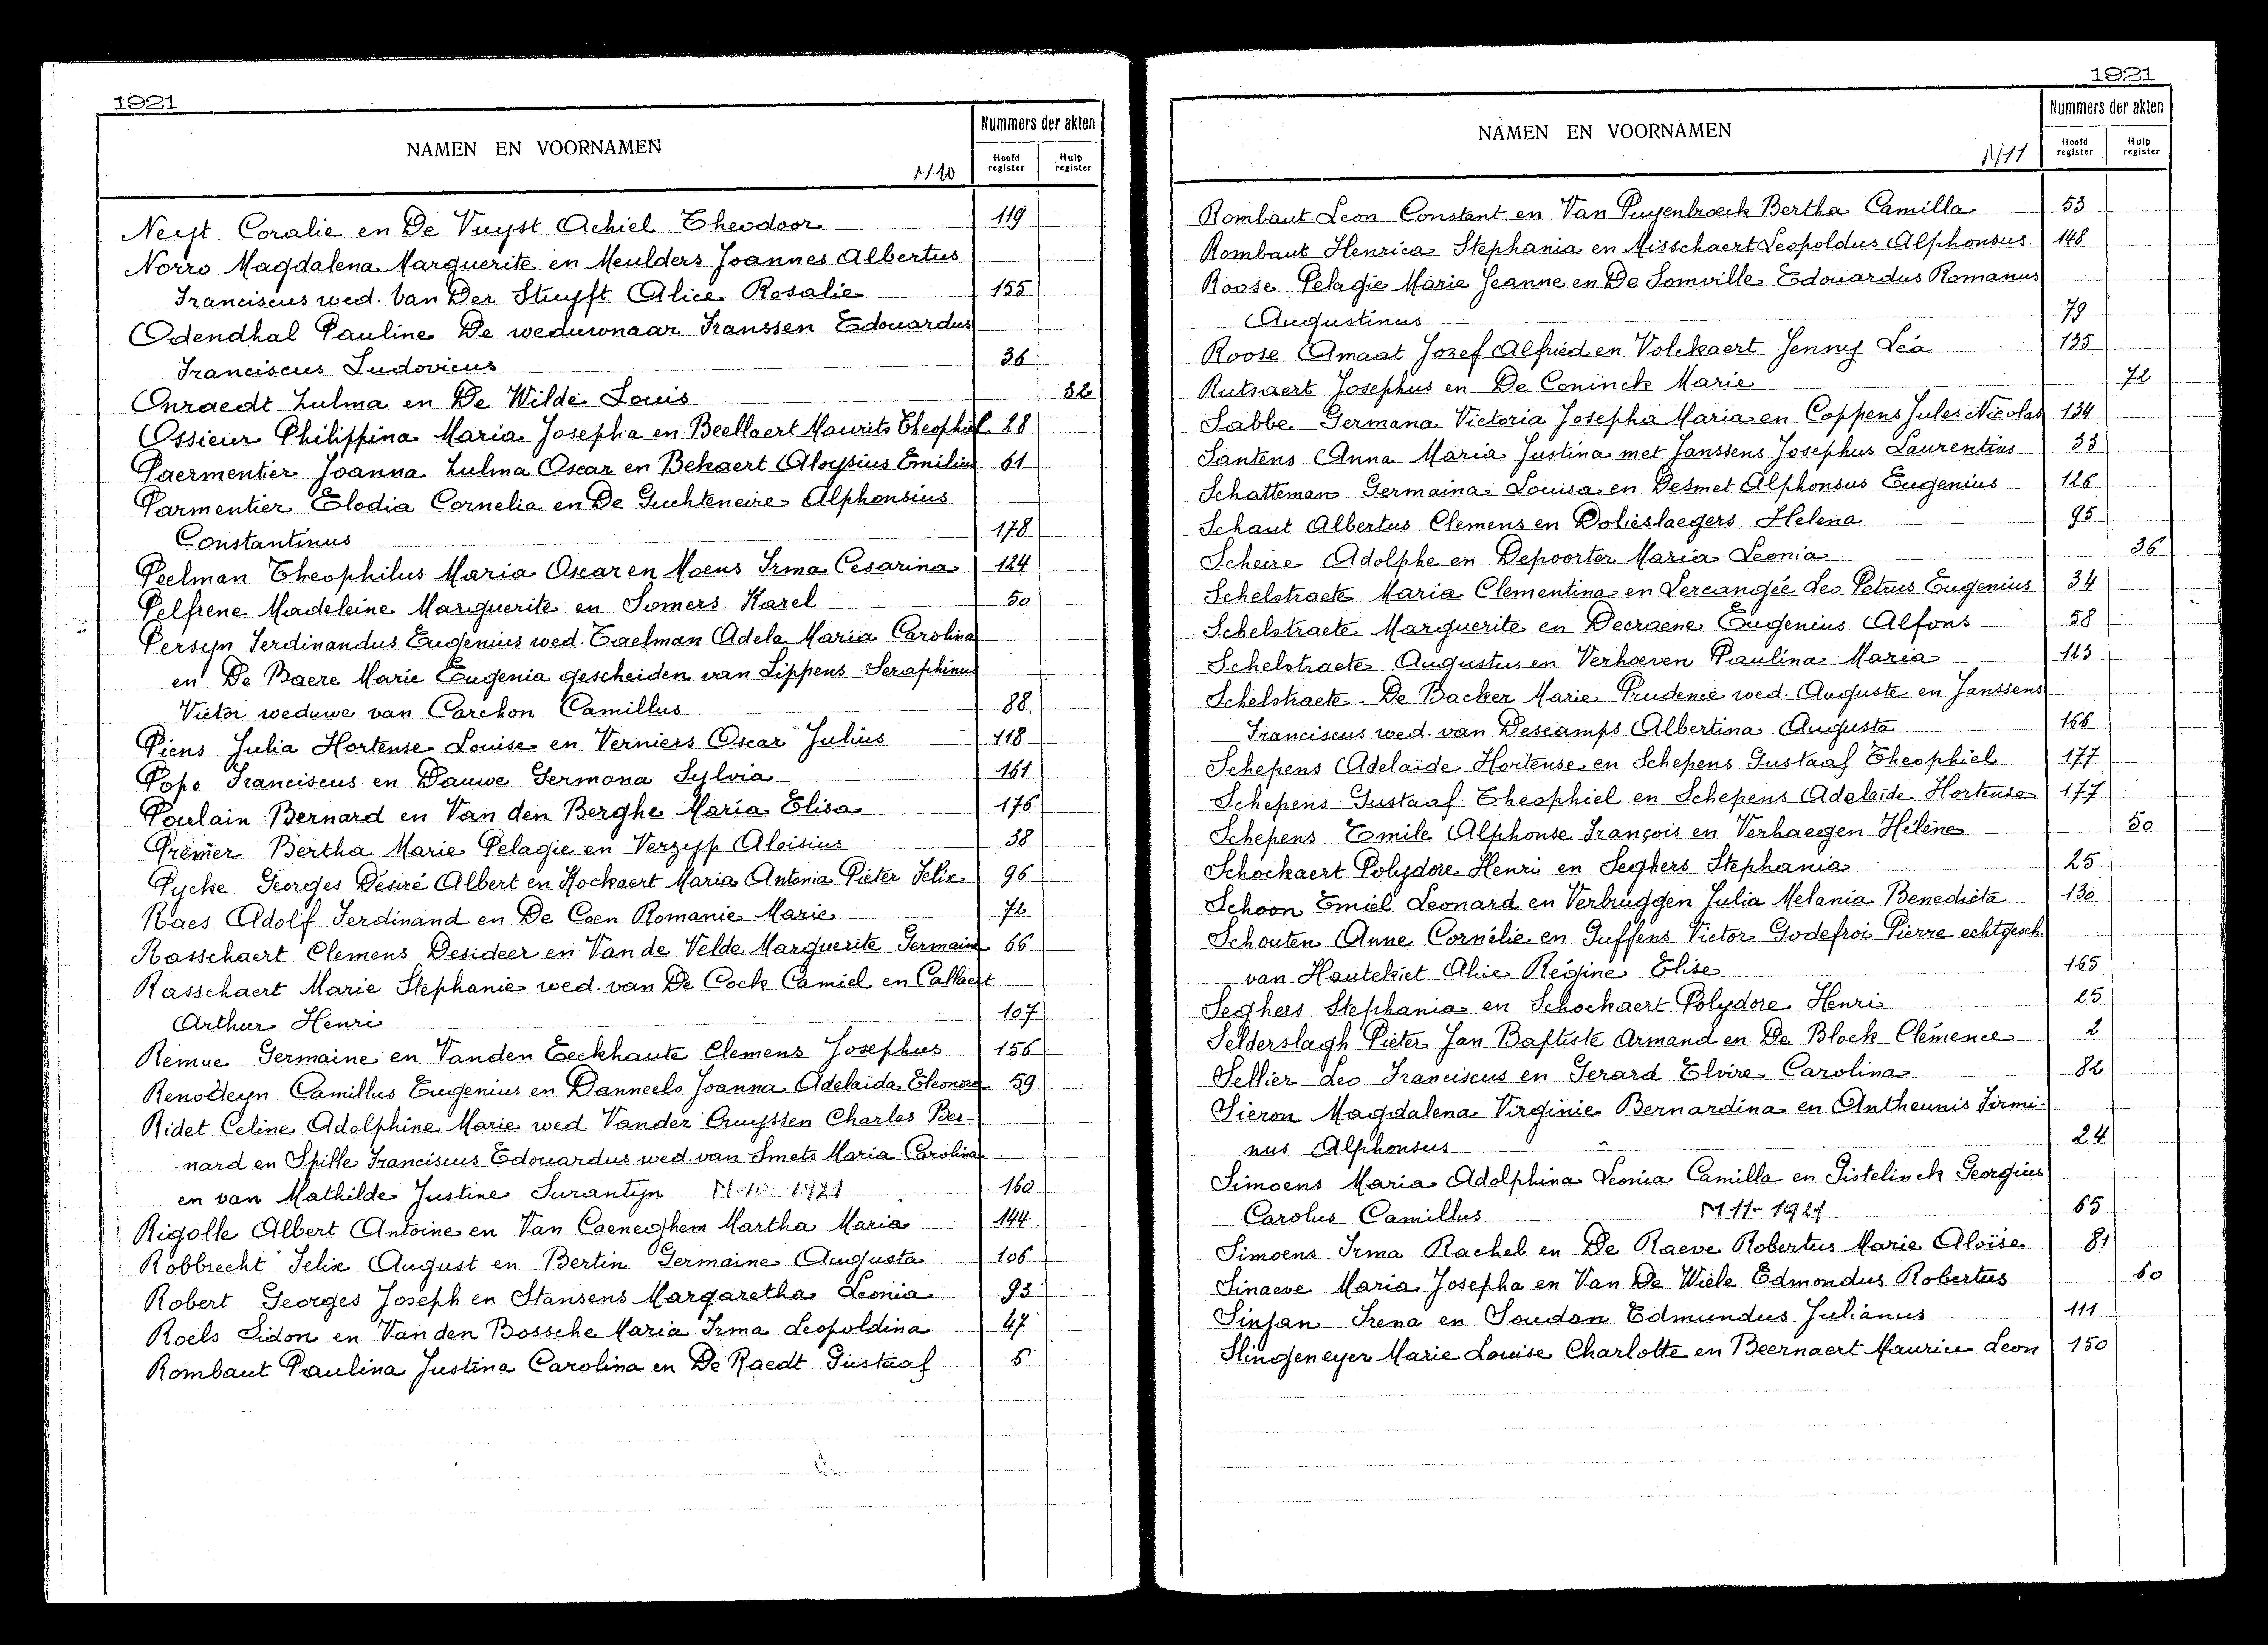 1921
NAMEN EN VOORNAMEN
M10
Nummers der akten
Hoofd register
Hulp register
Neyt Coralie en De Vuyst Achiel Theodoor 119
Norro Magdalena Marguerite en Meulders Joannes Albertus
Franciscus wed. Van Der Stuyft Alice Rosalie 155
Odendhal Pauline De weduwnaar Franssen Edouardus
Franciscus Ludovicus 36
Onraedt Zulma en De Wilde Louis 32
Ossieur Philippina Maria Josepha en Beellaert Maurits Theophiel 28
Paermentier Joanna Zulma Oscar en Bekaert Aloysius Emilius 61
Parmentier Elodia Cornelia en De Guchteneire Alphonsius
Constantinus 178
Peelman Theophilus Maria Oscar en Moens Irma Cesarina 124
Pelfrene Madeleine Marguerite en Somers Karel 50
Persyn Ferdinandus Eugenius wed. Taelman Adela Maria Carolina
en De Baere Marie Eugenia gescheiden van Lippens Seraphinus
Victor weduwe van Carchon Camillus 88
Piens Julia Hortense Louise en Verniers Oscar Julius 118
Popo Franciscus en Dauwe Germana Sylvia 161
Poulain Bernard en Van den Berghe Maria Elisa 176
Premer Bertha Marie Pelagie en Verzypp Aloisius 38
Pycke Georges Désiré Albert en Hockaert Maria Antonia Pieter Felix 96
Raes Adolf Ferdinand en De Coen Romanie Marie 72
Rasschaert Clemens Desideer en Van de Velde Marguerite Germaine 66
Rasschaert Marie Stephanie wed. van De Cock Camiel en Callaert
Arthur Henri 107
Remue Germaine en Vanden Eeckhaute Clemens Josephus 156
Renodeyn Camillus Eugenius en Danneels Joanna Adelaida Eleonora 59
Ridet Celine Adolphine Marie wed. Vander Cruyssen Charles Ber-
nard en Spille Franciscus Edouardus wed. van Smets Maria Carolina
en van Mathilde Justine Surantyn M 10 1921 160
Rigolle Albert Antoine en Van Caeneghem Martha Maria 144
Robbrecht Felix August en Bertin Germaine Augusta 106
Robert Georges Joseph en Stansens Margaretha Leonia 93
Roels Sidon en Van den Bossche Maria Irma Leopoldina 47
Rombaut Paulina Justina Carolina en De Raedt Gustaaf 6
1921
NAMEN EN VOORNAMEN
M11.
Nummers der akten
Hoofd register
Hulp register
Rombaut Leon Constant en Van Puyenbroeck Bertha Camilla 53
Rombaut Henrica Stephania en Misschaert Leopoldus Alphonsus 148
Roose Pelagie Marie Jeanne en De Somville Edouardus Romanus
Augustinus 79
Roose Amaat Jozef Alfried en Volckaert Jenny Léa 135
Rutsaert Josephus en De Coninck Marie 72
Sabbe Germana Victoria Josepha Maria en Coppens Jules Nicolas 134
Santens Anna Maria Justina met Janssens Josephus Laurentius 33
Schatteman Germaina Louisa en Desmet Alphonsus Eugenius 126
Schaut Albertus Clemens en Dolieslaegers Helena 95
Scheire Adolphe en Depoorter Maria Leonia 36
Schelstraete Maria Clementina en Vercangée Leo Petrus Eugenius 34
Schelstraete Marguerite en Decraene Eugenius Alfons 58
Schelstraete Augustus en Verhoeven Paulina Maria 123
Schelstraete - De Backer Marie Prudence wed. Auguste en Janssens
Franciscus wed. van Descamps Albertina Augusta 166
Schepens Adelaide Hortense en Schepens Gustaaf Theophiel 177
Schepens Gustaaf Theophiel en Schepens Adelaide Hortense 177
Schepens Emile Alphonse François en Verhaegen Hélène 50
Schockaert Polydore Henri en Seghers Stephania 25
Schoon Emiel Leonard en Verbruggen Julia Melania Benedicta 130
Schouten Anne Cornélie en Guffens Victor Godefroi Pierre echtgesch.
van Hautekiet Alice Régine Elise 165
Seghers Stephania en Schockaert Polydore Henri 25
Selderslagh Pieter Jan Baptiste Armand en De Block Clémence 2
Sellier Leo Franciscus en Gerard Elvire Carolina 82
Sieron Magdalena Virginie Bernardina en Antheunis Firmi-
nus Alphonsus 24
Simoens Maria Adolphina Leonia Camilla en Gistelinck Georgius
Carolus Camillus M 11-1921 65
Simoens Irma Rachel en De Raeve Robertus Marie Aloïse 81
Sinaeve Maria Josepha en Van De Wiele Edmondus Robertus 60
Sinjan Irena en Soudan Edmundus Julianus 111
Slingeneyer Marie Louise Charlotte en Beernaert Maurice Leon 150